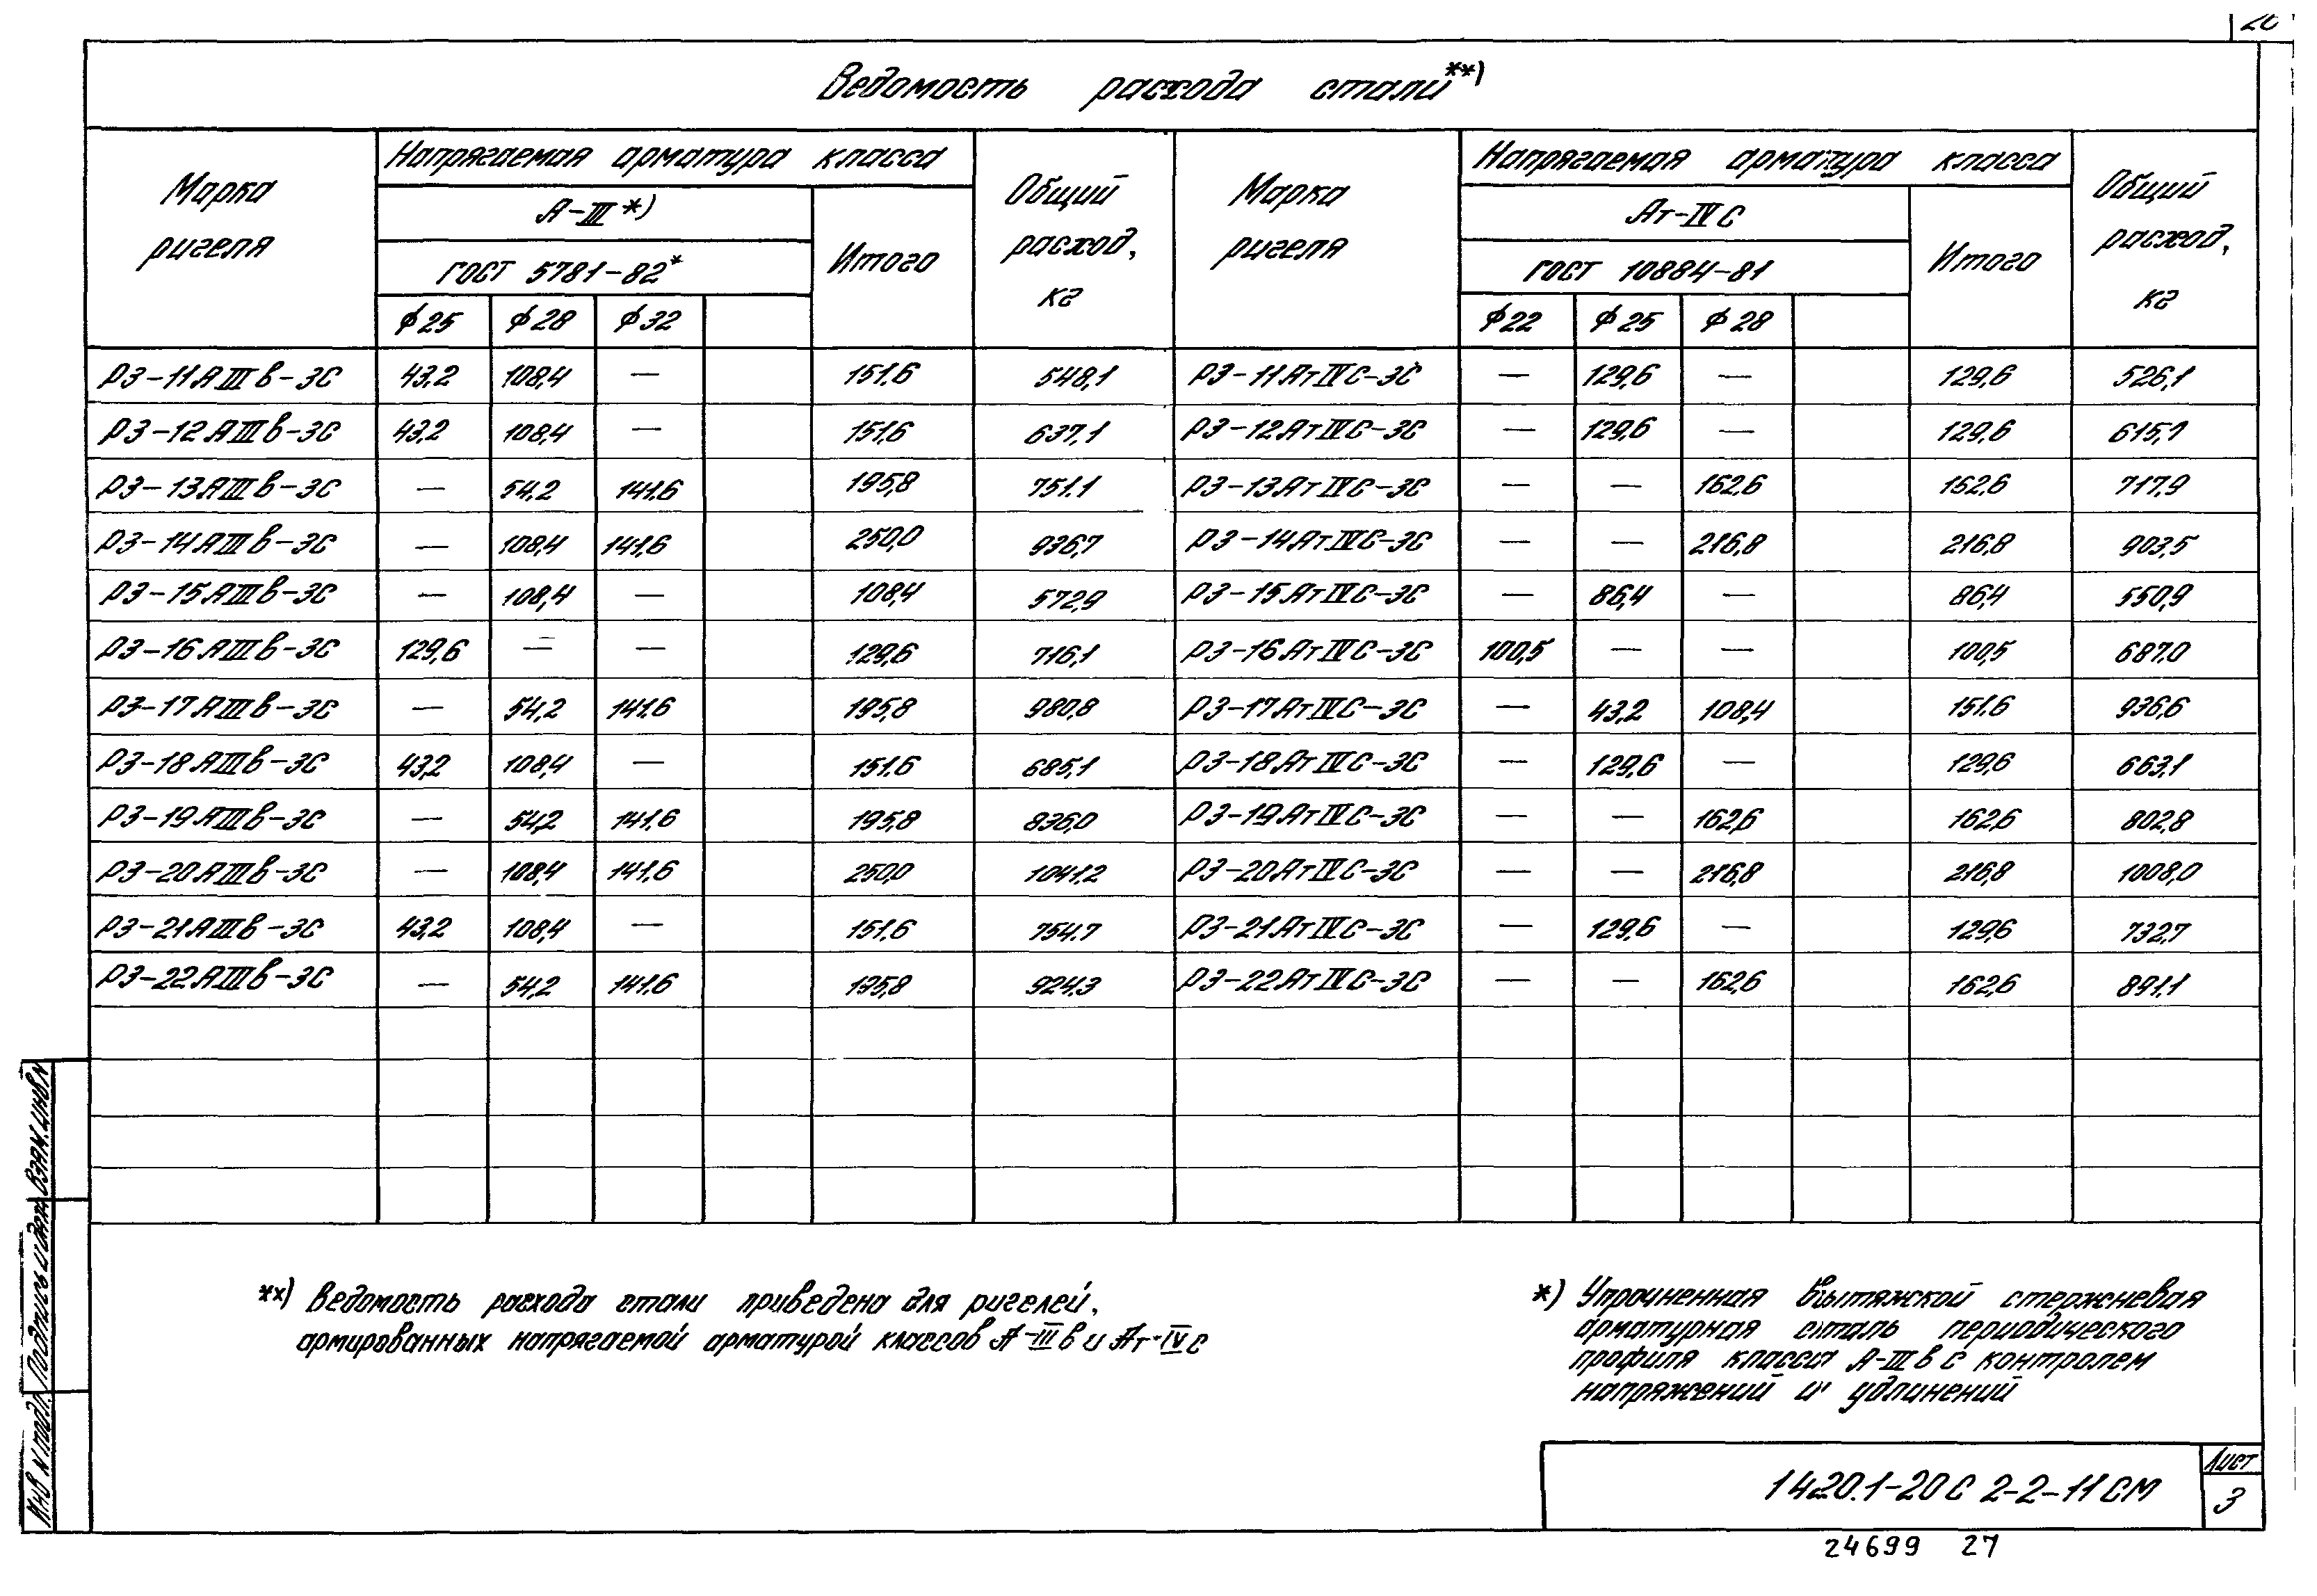 Ведомость расхода стали**)
Марка ригеля | Напрягаемая арматура класса | Общий расход, кг | Марка ригеля | Напрягаемая арматура класса | Общий расход, кг
А-III*) | Итого | Ат-IVС | Итого
ГОСТ 5781-82* | ГОСТ 10884-81
ϕ25 | ϕ28 | ϕ32 | ϕ22 | ϕ25 | ϕ28
РЗ-11АIIIв-3С | 43,2 | 108,4 | — | 151,6 | 548,1 | РЗ-11АтIVС-3С | — | 129,6 | — | 129,6 | 526,1
РЗ-12АIIIв-3С | 43,2 | 108,4 | — | 151,6 | 637,1 | РЗ-12АтIVС-3С | — | 129,6 | — | 129,6 | 615,1
РЗ-13АIIIв-3С | — | 54,2 | 141,6 | 195,8 | 751.1 | РЗ-13АтIVС-3С | — | — | 162,6 | 162,6 | 717,9
РЗ-14АIIIв-3С | — | 108,4 | 141,6 | 250,0 | 936,7 | РЗ-14АтIVС-3С | — | — | 216,8 | 216,8 | 903,5
РЗ-15АIIIв-3С | — | 108,4 | — | 108,4 | 572,9 | РЗ-15АтIVС-3С | — | 86,4 | — | 86,4 | 550,9
РЗ-16АIIIв-3С | 129,6 | — | — | 129,6 | 716,1 | РЗ-16АтIVС-3С | 100,5 | — | — | 100,5 | 687,0
РЗ-17АIIIв-3С | — | 54,2 | 141,6 | 195,8 | 980,8 | РЗ-17АтIVС-3С | — | 43,2 | 108,4 | 151.6 | 936,6
РЗ-18АIIIв-3С | 43,2 | 108,4 | — | 151,6 | 685,1 | РЗ-18АтIVС-3С | — | 129,6 | — | 129,6 | 663,1
РЗ-19АIIIв-3С | — | 54,2 | 141,6 | 195,8 | 836,0 | РЗ-19АтIVС-3С | — | — | 162,6 | 162,6 | 802,8
РЗ-20АIIIв-3С | — | 108,4 | 141,6 | 250,0 | 1041,2 | РЗ-20АтIVС-3С | — | — | 216,8 | 216,8 | 1008,0
РЗ-21АIIIв-3С | 43,2 | 108,4 | — | 151,6 | 754.7 | РЗ-21АтIVС-3С | — | 129,6 | — | 129,6 | 732,7
РЗ-22АIIIв-3С | — | 54,2 | 141,6 | 195,8 | 924,3 | РЗ-22АтIVС-3С | — | — | 162,6 | 162,6 | 891,1
**) Ведомость расхода стали приведена для ригелей,
армированных напрягаемой арматурой классов А-IIIв и Ат-IVс
*) Упрочненная вытяжкой стержневая
арматурная сталь периодического
профиля класса А-IIIв с контролем
напряжений и удлинений
1420.1-20с 2-2-11СМ
Лист
3
24699 27
Взам.инв.N
Подпись и дата
Инв N подл.